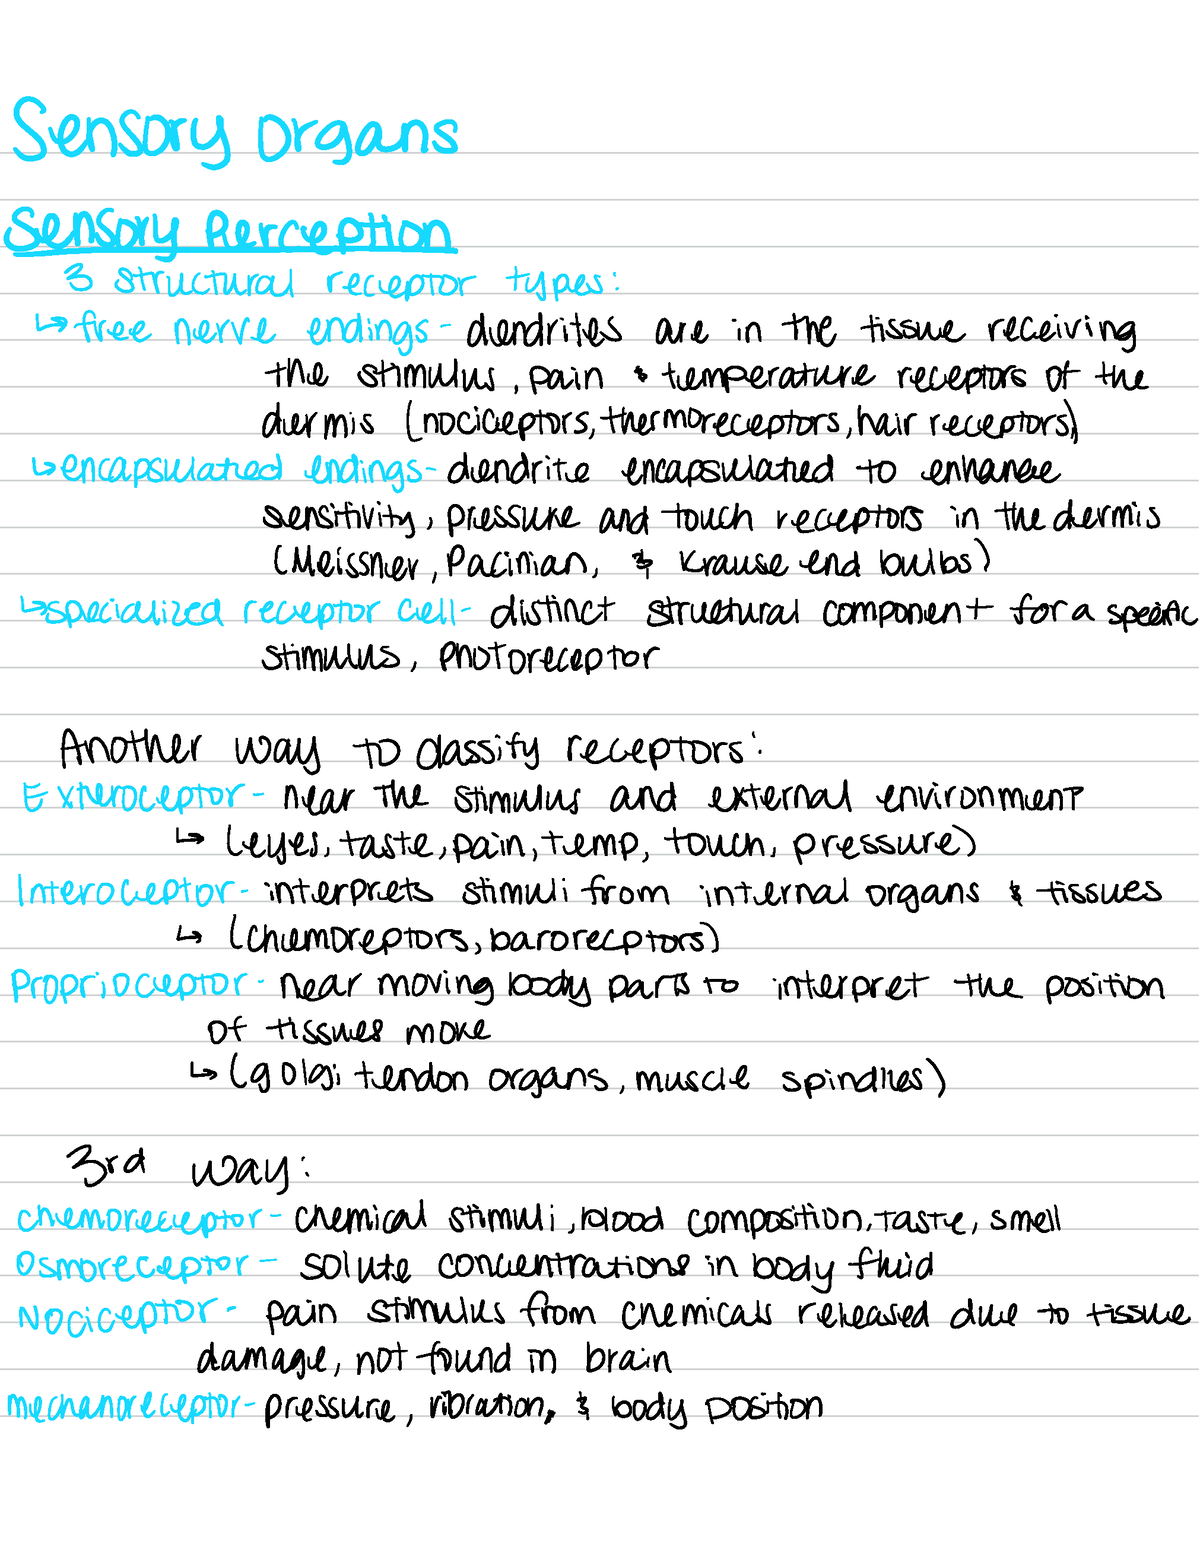 Sensory Organs
Sensory Perception
3 structural receptor types:
↳ free nerve endings - dendrites are in the tissue receiving
the stimulus, pain & temperature receptors of the
dermis (nociceptors, thermoreceptors, hair receptors)
↳ encapsulated endings - dendrite encapsulated to enhance
sensitivity, pressure and touch receptors in the dermis
(Meissner, Pacinian, & Krause end bulbs)
↳ specialized receptor cell - distinct structural component for a specific
stimulus, photoreceptor
Another way to classify receptors:
Exteroceptor - near the stimulus and external environment
↳ (eyes, taste, pain, temp, touch, pressure)
Interoceptor - interprets stimuli from internal organs & tissues
↳ (chemoreptors, barorecptors)
Proprioceptor - near moving body parts to interpret the position
of tissues move
↳ (golgi tendon organs, muscle spindles)
3rd way:
chemoreceptor - chemical stimuli, blood composition, taste, smell
Osmoreceptor - solute concentrations in body fluid
Nociceptor - pain stimulus from chemicals released due to tissue
damage, not found in brain
mechanoreceptor - pressure, vibration, & body position